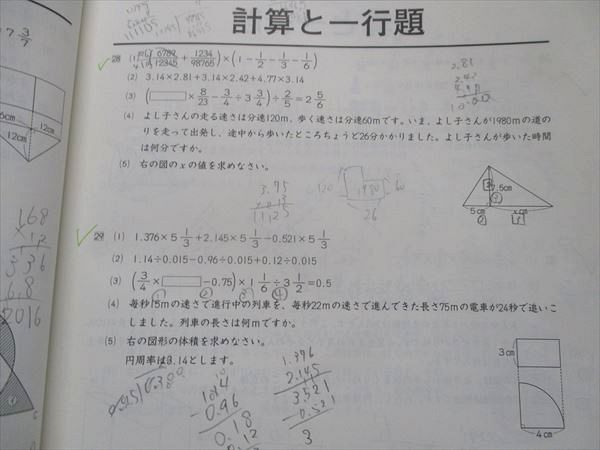 計算と一行題
7 3/7
28 (1) (6789/12345 + 1234/98765) × (1 − 1/2 − 1/3 − 1/6)
(2) 3.14×2.81+3.14×2.42+4.77×3.14
(3) (□ × 8/23 − 3/4 ÷ 3 3/4) ÷ 2/5 = 2 5/6
(4) よし子さんの走る速さは分速120m、歩く速さは分速60mです。いま、よし子さんが1980mの道の
りを走って出発し、途中から歩いたところちょうど26分かかりました。よし子さんが歩いた時間
は何分ですか。
(5) 右の図のxの値を求めなさい。
7.5cm
5cm
xcm
12cm
12cm
29 (1) 1.376×5 1/3 + 2.145×5 1/3 − 0.521×5 1/3
(2) 1.14÷0.015−0.96÷0.015+0.12÷0.015
(3) (3/4 × □ − 0.75) × 1 1/6 ÷ 3 1/2 = 0.5
① ② ③ ④
(4) 毎秒15mの速さで進行中の列車を、毎秒22mの速さで進んできた長さ75mの電車が24秒で追いこ
しました。列車の長さは何mですか。
(5) 右の図形の体積を求めなさい。
円周率は3.14とします。
3cm
4cm
2.81
3.75
1125
120
1980
60
26
168
×12
336
2016
1.14
−0.96
0.18
0.12
1.376
2.145
3.521
−0.521
3